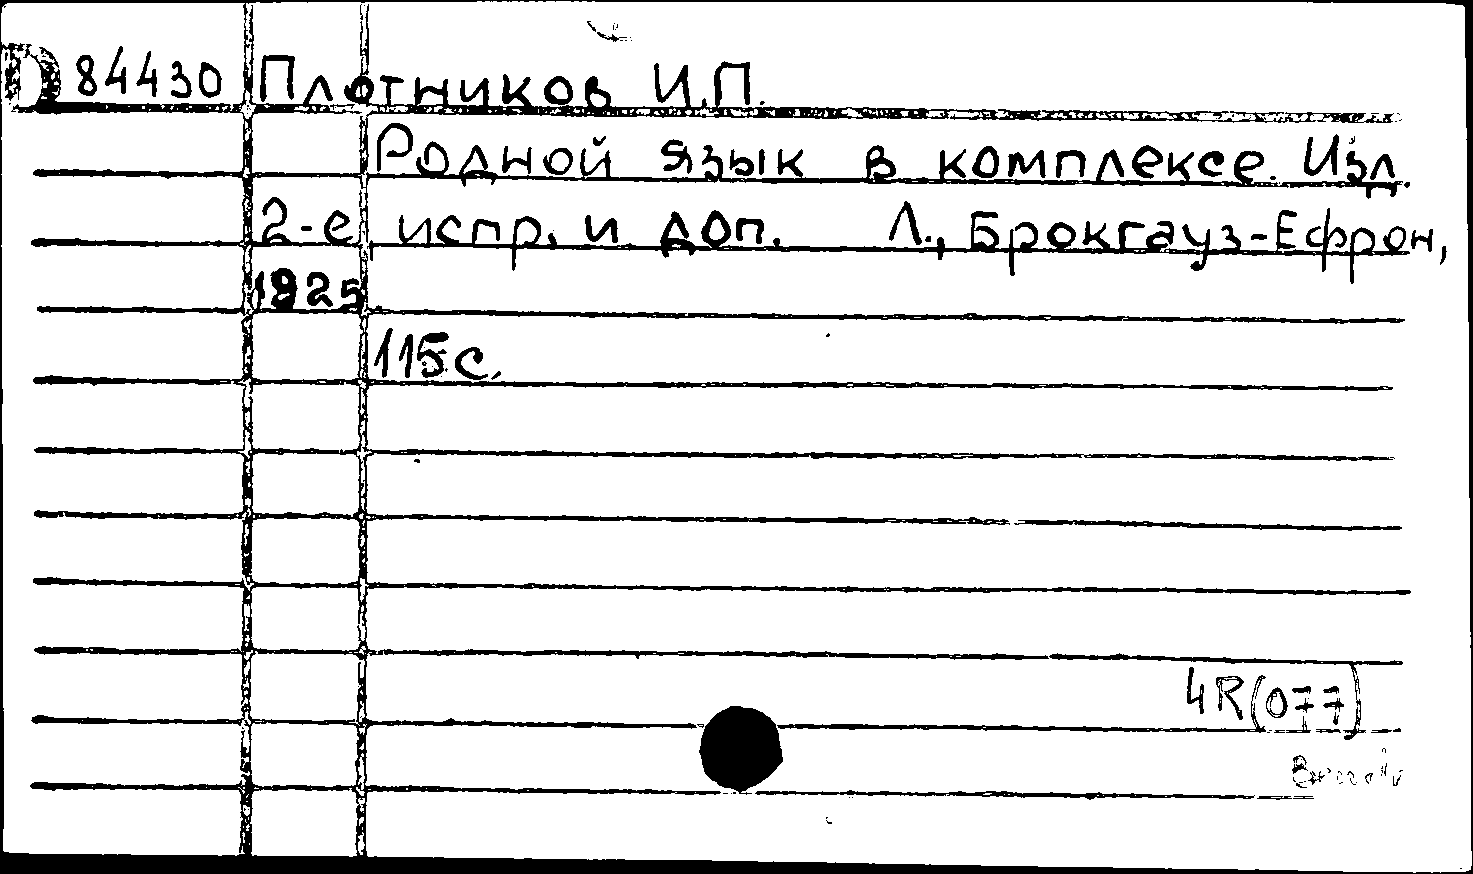 D 84430 Плотников И.П.
Родной язык в комплексе. Изд.
2-е, испр. и доп. Л., Брокгауз-Ефрон,
1925.
115 с.
4R(077)